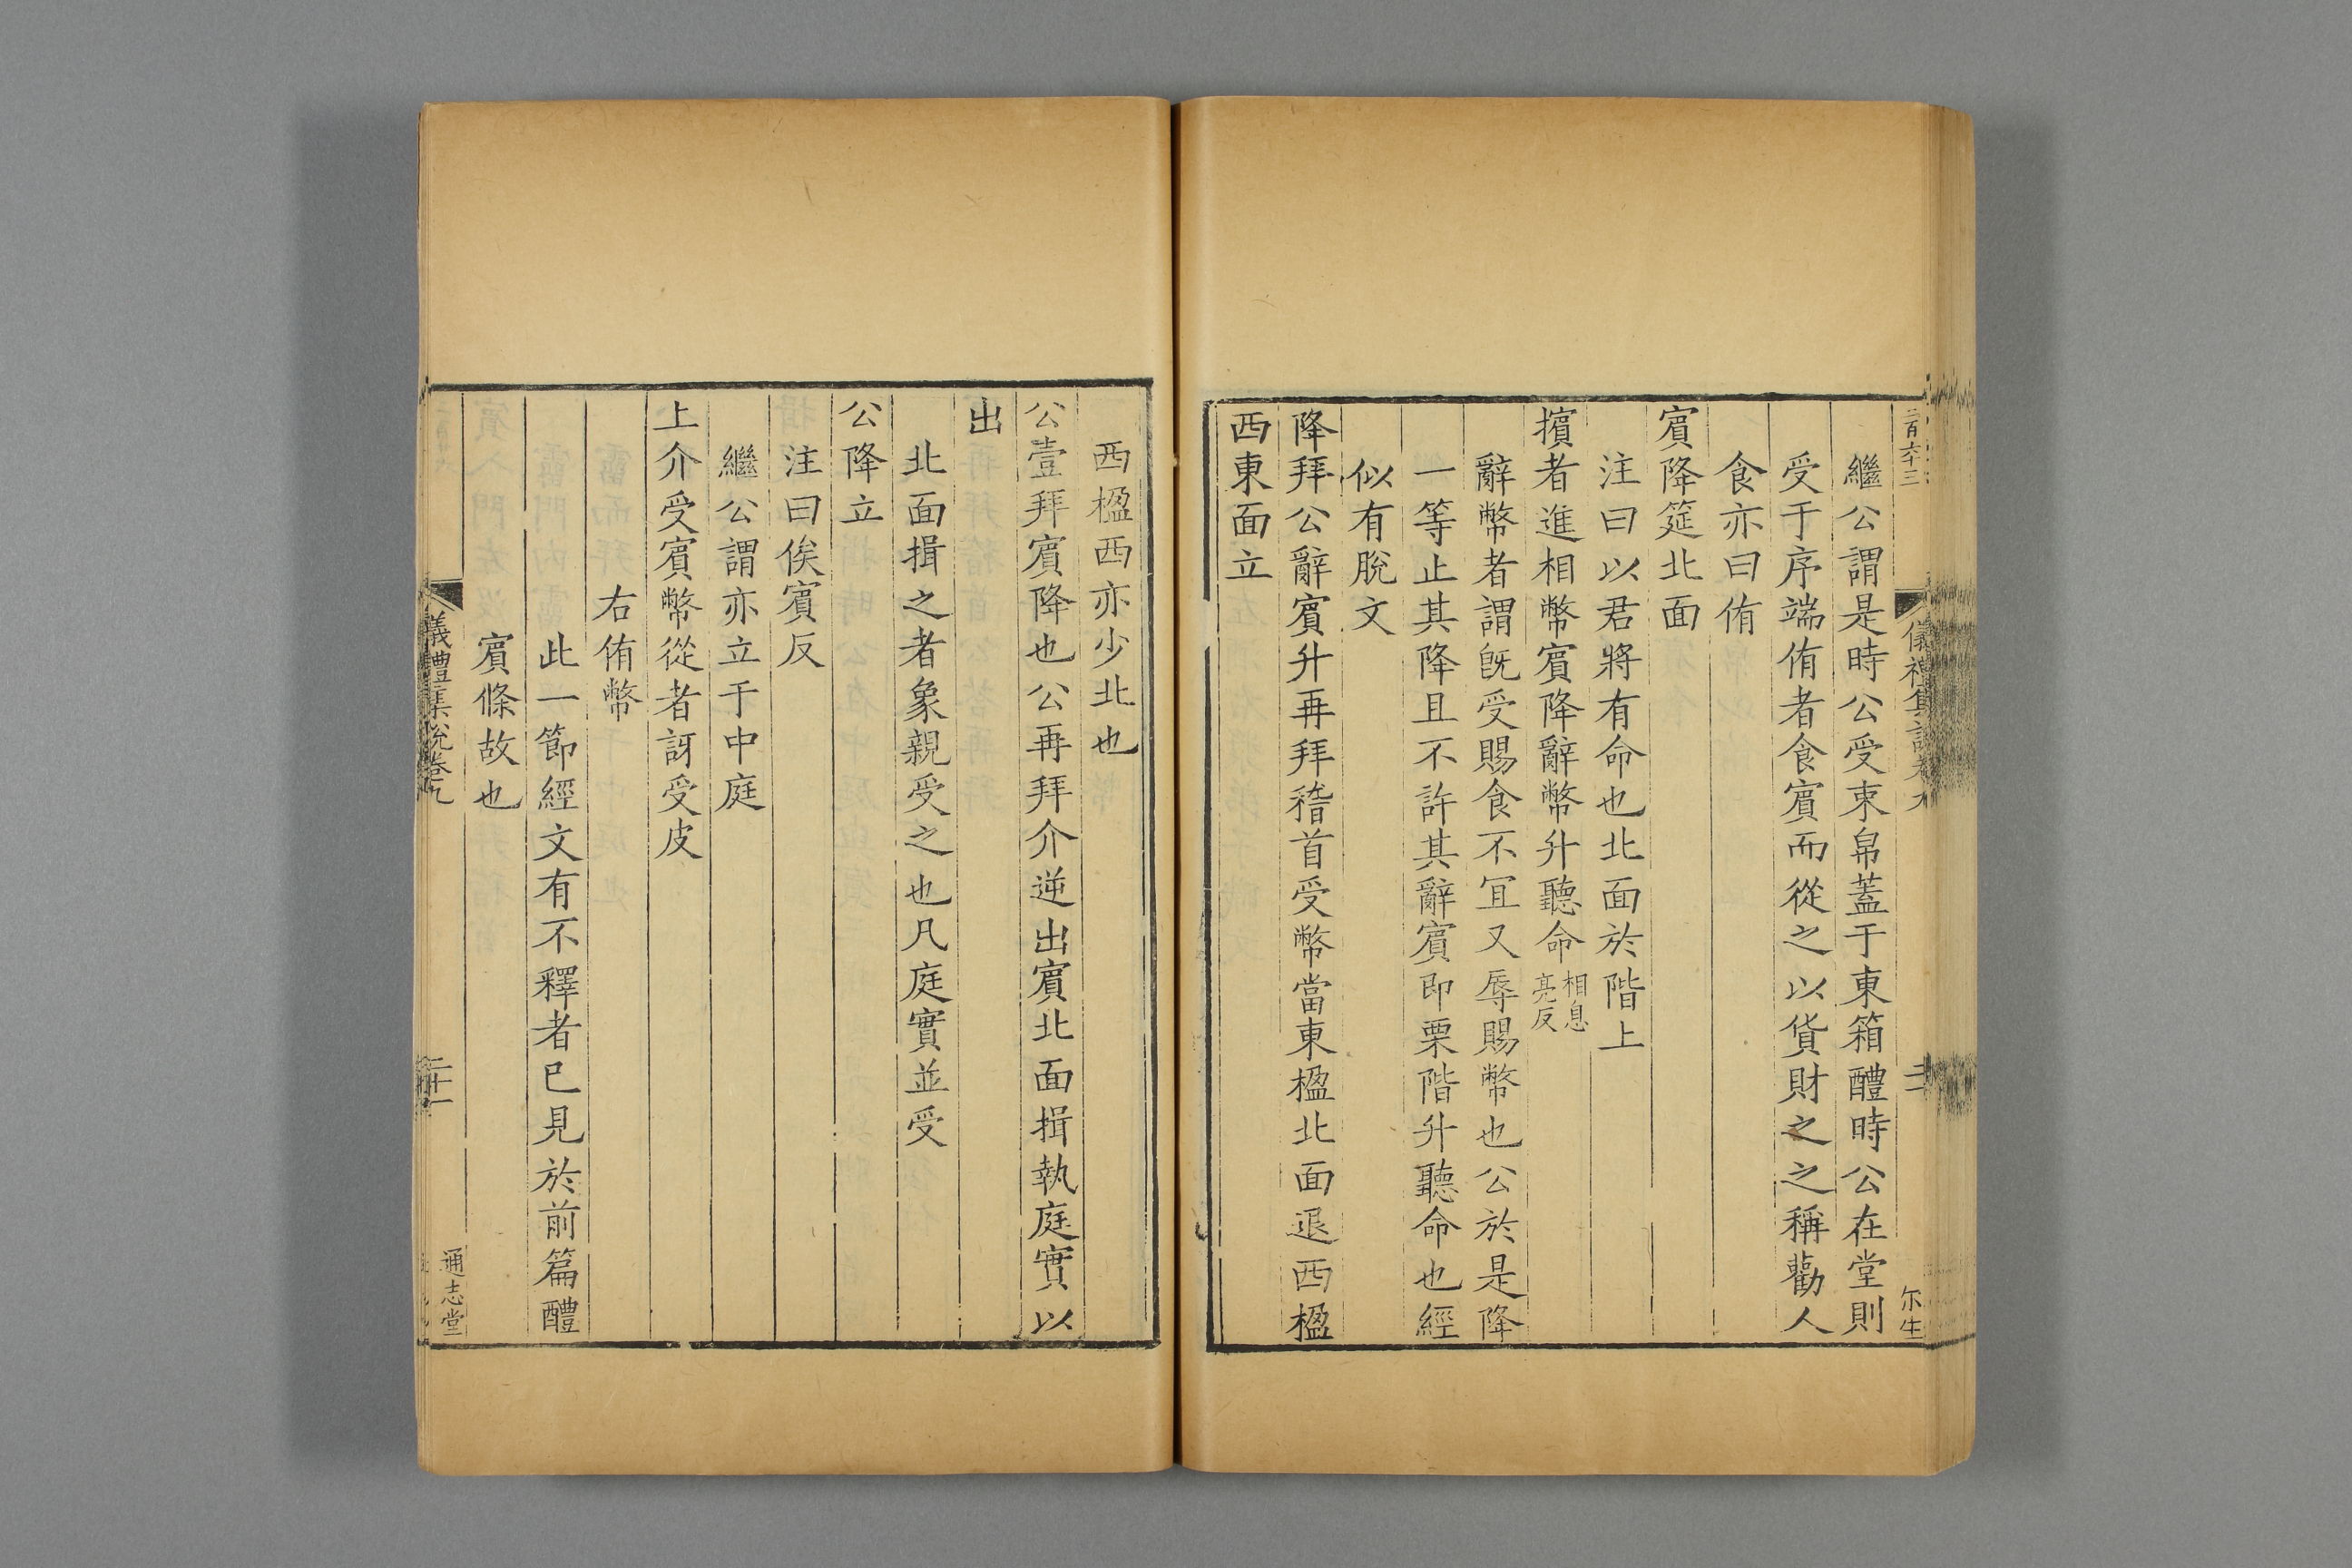 二百六十三
繼公謂是時公受束帛蓋于東箱醴時公在堂則
受于序端侑者食賓而從之以貨財之之稱勸人
食亦曰侑
賓降筵北面
注曰以君將有命也北面於階上
擯者進相幣賓降辭幣升聽命相息亮反
辭幣者謂旣受賜食不冝又辱賜幣也公於是降
一等止其降且不許其辭賓即栗階升聽命也經
似有脫文
降拜公辭賓升再拜稽首受幣當東楹北面退西楹
西東面立
西楹西亦少北也
公壹拜賓降也公再拜介逆出賓北面揖執庭實以
出
北面揖之者象親受之也凡庭實並受
公降立
注曰俟賓反
繼公謂亦立于中庭
上介受賓幣從者訝受皮
右侑幣
此一節經文有不釋者已見於前篇醴
賓條故也
儀禮集說卷九
二十一
通志堂